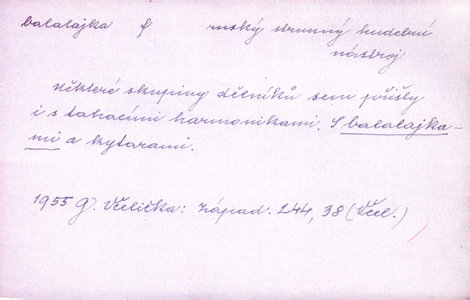 balalajka f ruský strunný hudební
nástroj
Některé skupiny dělníků sem přišly
i s tahacími harmonikami. S balalajka-
mi a kytarami.
1955 G. Včelička: Západ. 244, 38 (Včel.)